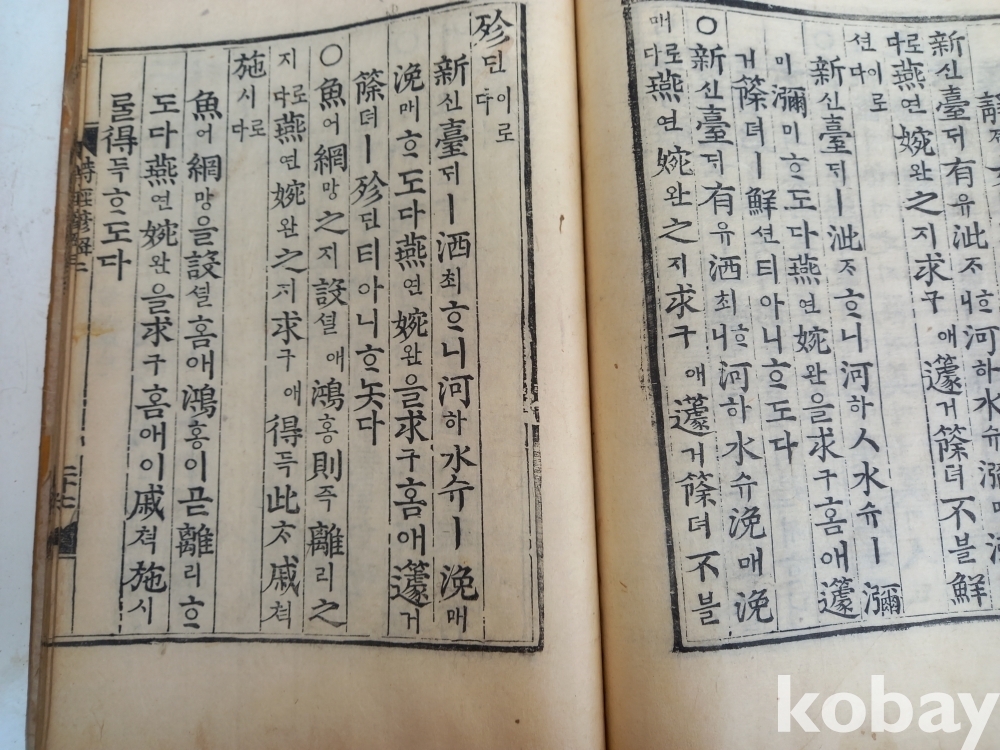 新신臺ᄃᆡ有유泚ᄌᆞᄒᆞ니河하水슈瀰미
로다燕연婉완之지求구애籧거篨뎌不블鮮
션이로다
新신臺ᄃᆡㅣ泚ᄌᆞᄒᆞ니河하人水슈ㅣ瀰
미瀰미ᄒᆞ도다燕연婉완을求구홈애籧
거篨뎌ㅣ鮮션티아니ᄒᆞ도다
○新신臺ᄃᆡ有유洒최ᄒᆞ니河하水슈浼매浼
매로다燕연婉완之지求구애籧거篨뎌不블
殄딘이로다
新신臺ᄃᆡㅣ洒최ᄒᆞ니河하水슈ㅣ浼매
浼매ᄒᆞ도다燕연婉완을求구홈애籧거
篨뎌ㅣ殄딘티아니ᄒᆞ놋다
○魚어網망之지設셜애鴻홍則즉離리之
지로다燕연婉완之지求구애得득此ᄎᆞ戚쳑
施시로다
魚어網망을設셜홈애鴻홍이곧離리ᄒᆞ
도다燕연婉완을求구홈애이戚쳑施시
ᄅᆞᆯ得득ᄒᆞ도다
詩經諺解二
二十七
kobay